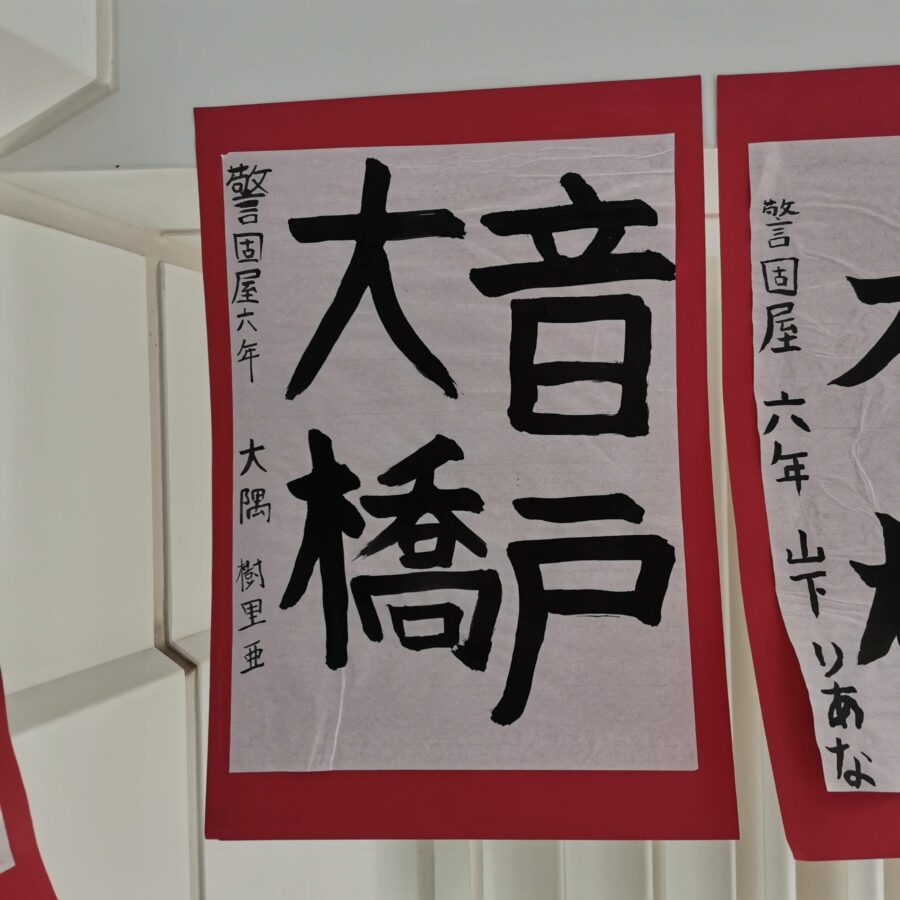 音戸
大橋
警固屋六年 大隅 樹里亜
警固屋 六年 山下 りあな